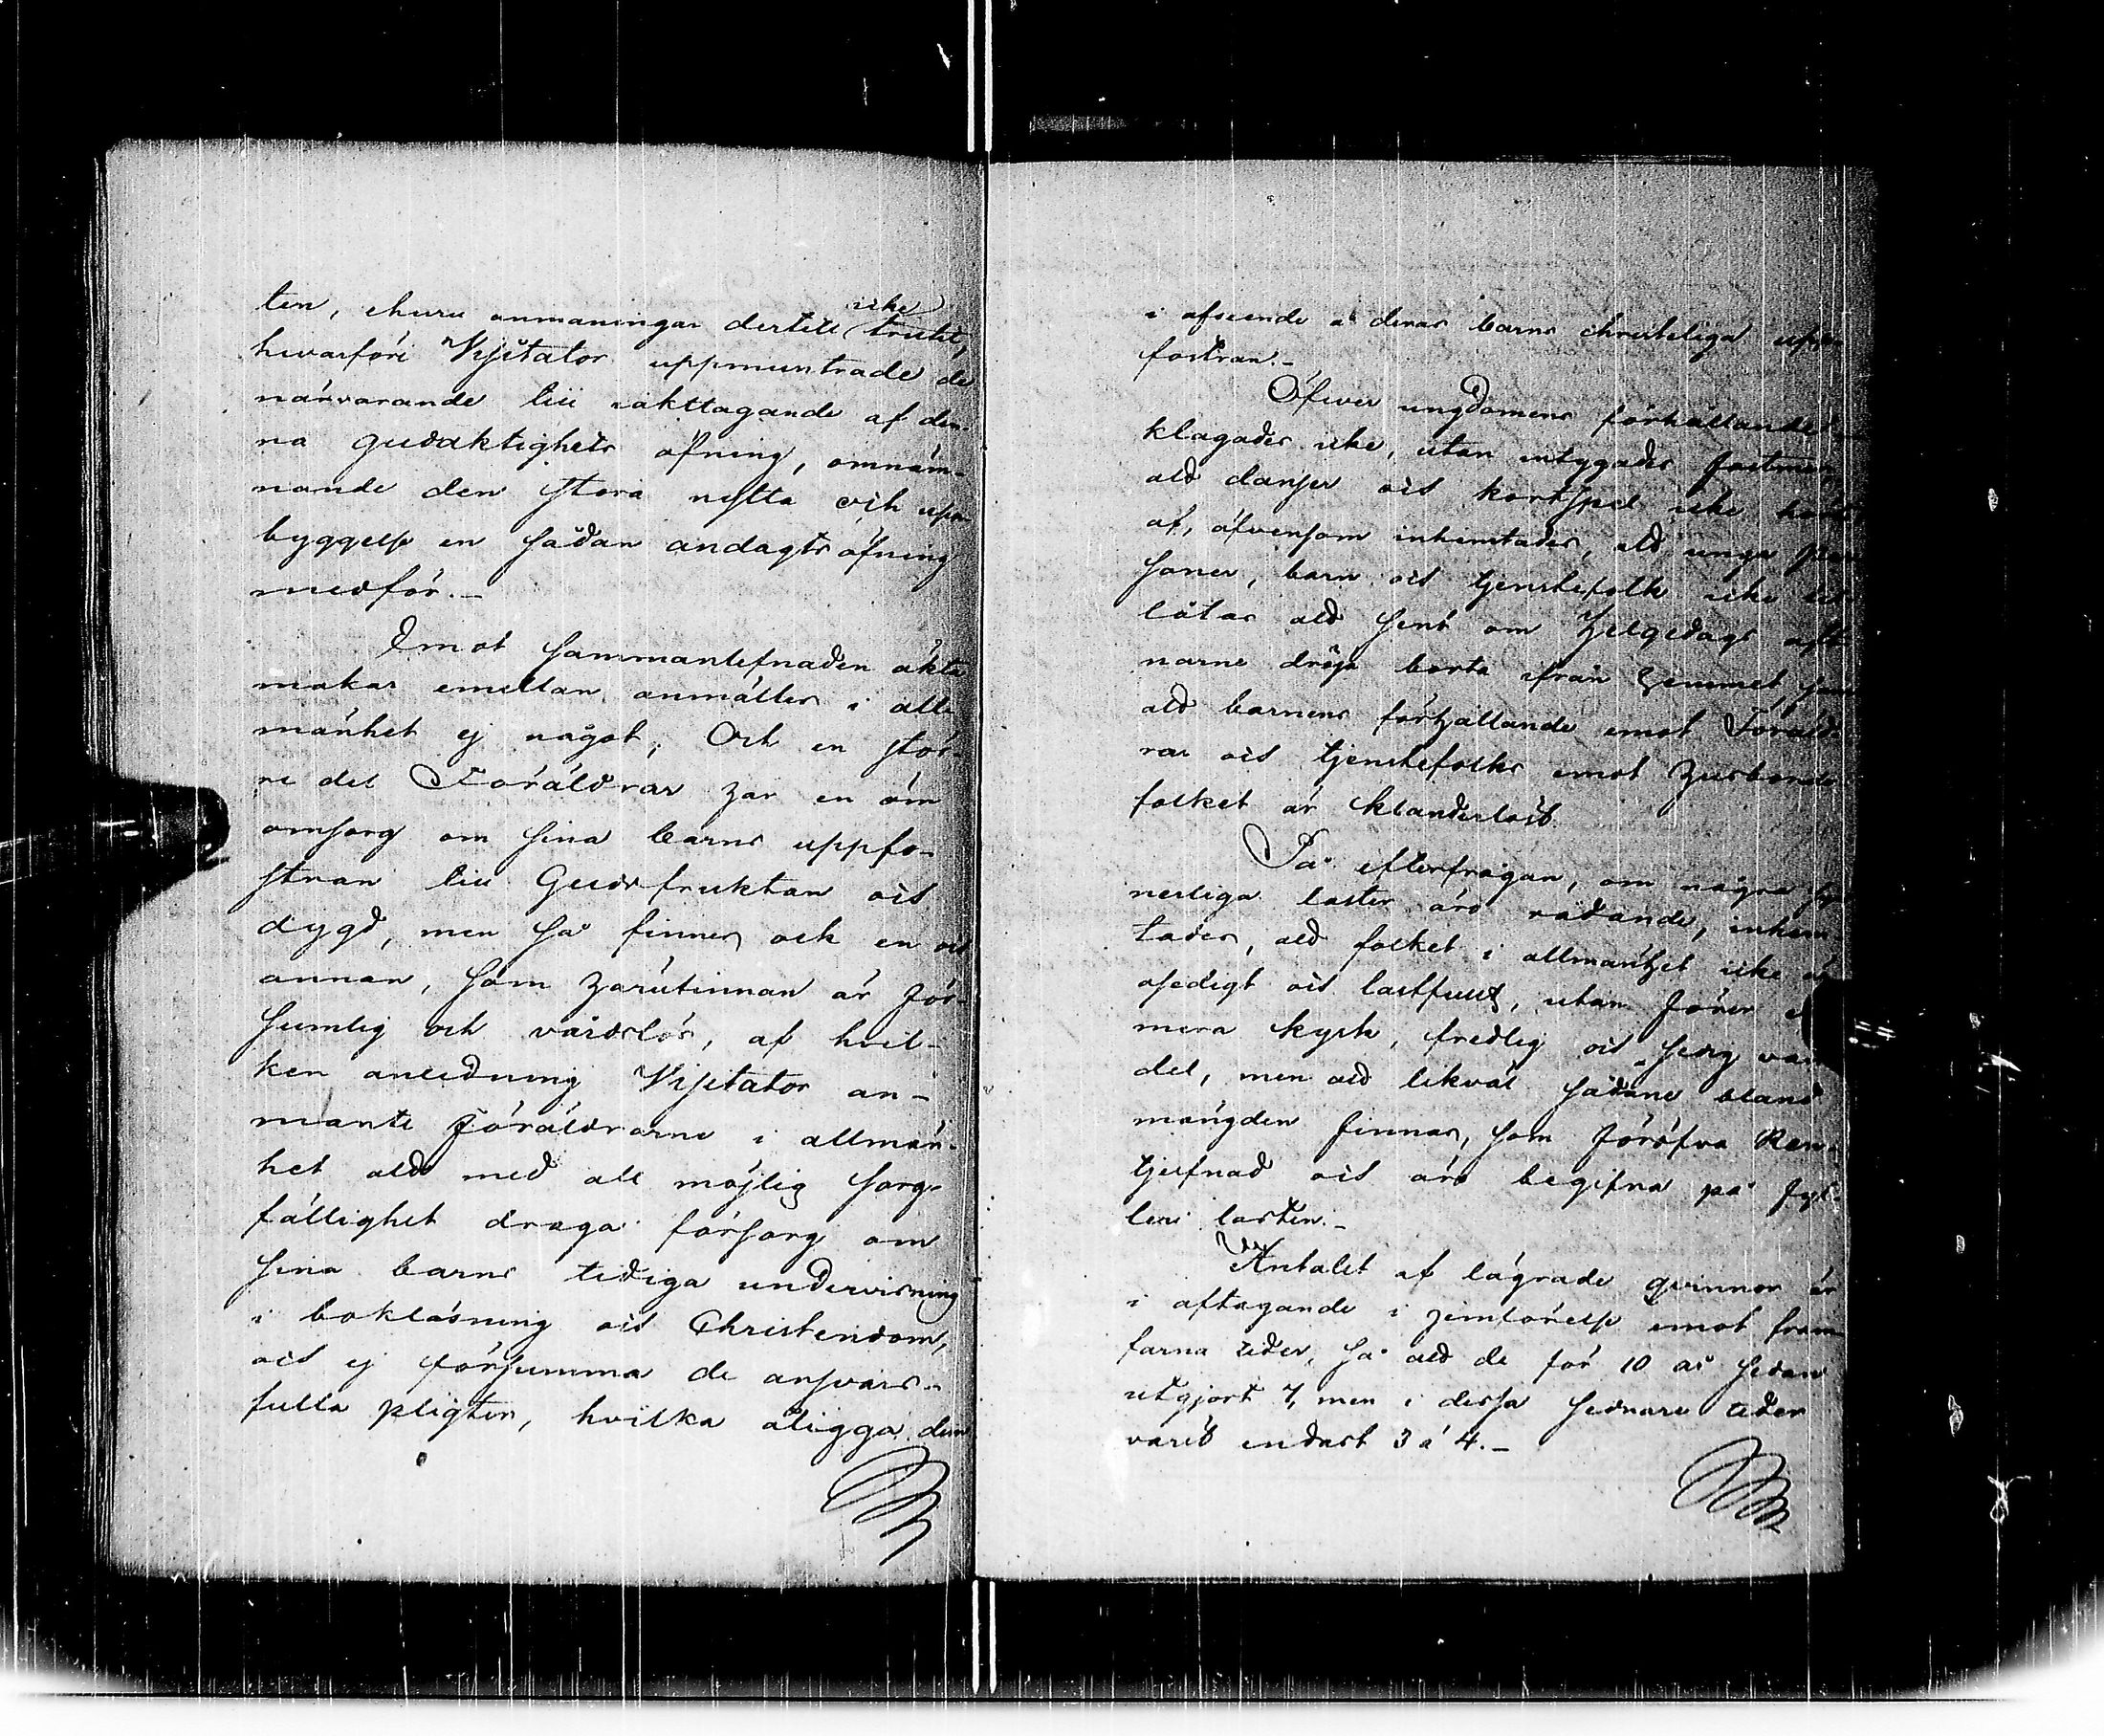 ten, ehuru anmaningar dertill icke trutit,
hvarföre Visitator uppmuntrade de
närvarande till iakttagande af den-
na gudaktighets öfning, omnäm-
nande den stora nytta och upp-
byggelse en sådan andagts öfning
medför.-
Emot sammanlefnaden äkta
makar emellan anmältes i all-
mänhet ej något, Och en stör-
re del Föräldrar har en öm
omsorg om sina barns uppfo-
stran till Gudsfruktan och
dygd, men så finnes ock en och
annan, som härutinnan är för-
sumlig och vårdslös, af hvil-
ken anledning Visitator an-
mante Föräldrarne i allmän-
het att med all möjlig sorg-
fällighet draga försorg om
sina barns tidiga undervisning
i bokläsning och Christendom,
och ej försumma de ansvars-
fulla pligter, hvilka åligga dem
i afseende å deras barns christeliga upp-
fostran.-
Öfver ungdomens förhållande
klagades icke, utan intygades
att danser och kortspel icke
af, äfvensom inhemtades, att unga per-
soner, barn och tjenstefolk icke till-
låtas att sent om helgedags aft-
narne dröja borta ifrån hemmet, samt
att barnens förhållande emot Föräld-
rar och tjenstefolks emot husbonde-
folket är klanderlöst.
På efterfrågan, om några syn-
nerliga laster äro rådande, inhem-
tades, att folket i allmänhet icke är
osedigt och lastfullt, utan förer en
mera kysk, fredlig och sedig van-
del, men att likväl sådane bland
mängden finnas, som föröfva Ren-
tjufnad och äro begifna på fyl-
leri lasten.-
Antalet af lägrade qvinnor är
i aftagande i jemförelse emot fram-
farna tider, så att de för 10 år sedan
utgjort 7, men i dessa sednare tider
varit endast 3 à 4.-